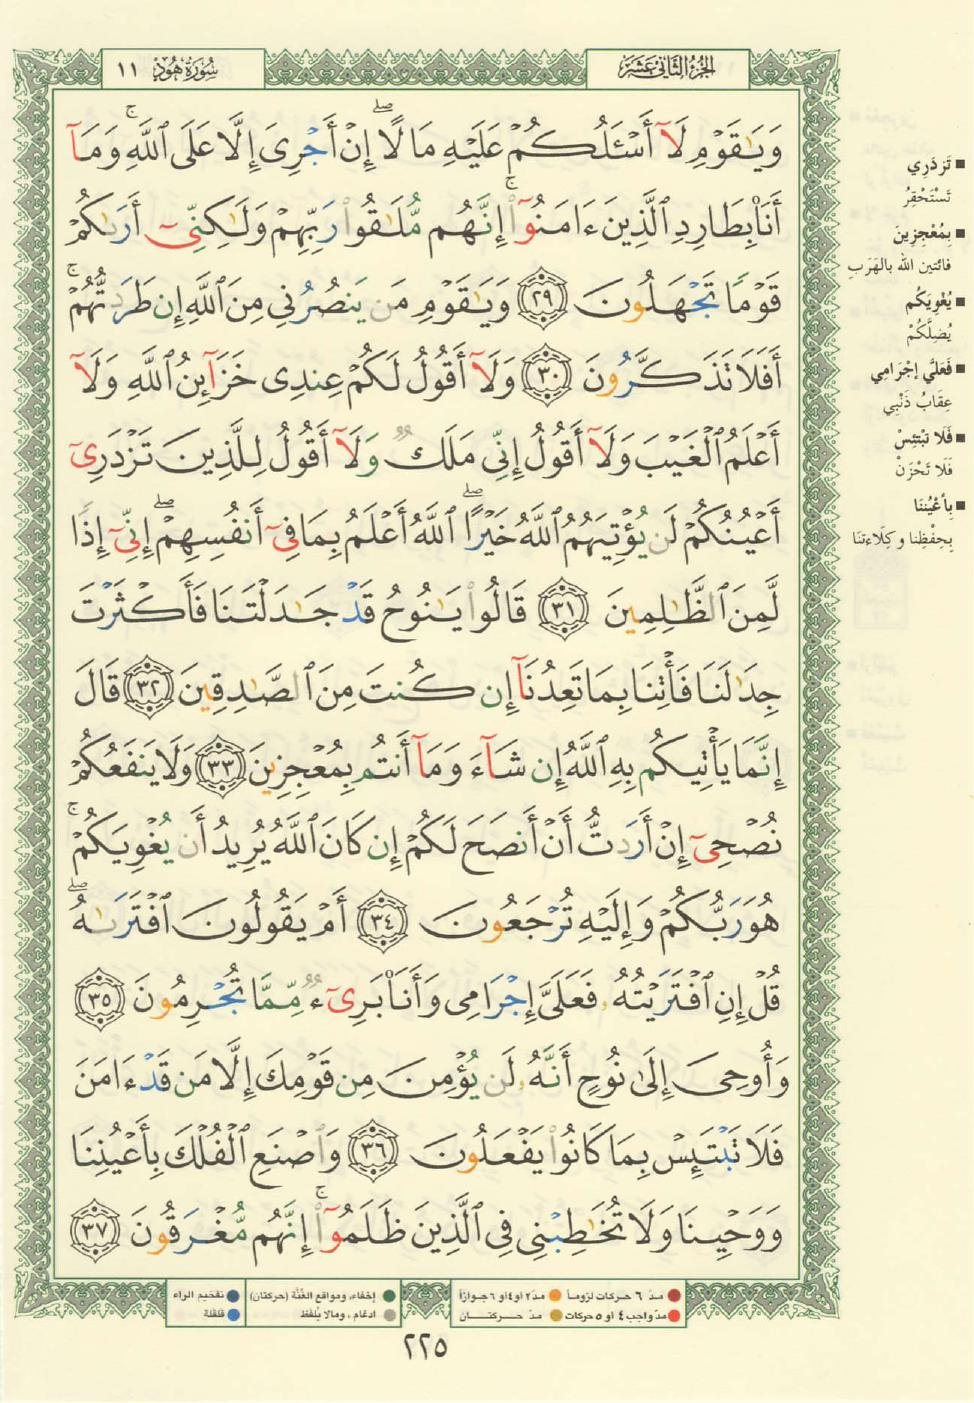 الجزء الثاني عشر
سورة هود ١١
وَيَٰقَوْمِ لَآ أَسْـَٔلُكُمْ عَلَيْهِ مَالًا ۖ إِنْ أَجْرِىَ إِلَّا عَلَى ٱللَّهِ ۚ وَمَآ
أَنَا۠ بِطَارِدِ ٱلَّذِينَ ءَامَنُوٓا۟ ۚ إِنَّهُم مُّلَٰقُوا۟ رَبِّهِمْ وَلَٰكِنِّىٓ أَرَىٰكُمْ
قَوْمًا تَجْهَلُونَ ٢٩ وَيَٰقَوْمِ مَن يَنصُرُنِى مِنَ ٱللَّهِ إِن طَرَدتُّهُمْ ۚ
أَفَلَا تَذَكَّرُونَ ٣٠ وَلَآ أَقُولُ لَكُمْ عِندِى خَزَآئِنُ ٱللَّهِ وَلَآ
أَعْلَمُ ٱلْغَيْبَ وَلَآ أَقُولُ إِنِّى مَلَكٌ وَلَآ أَقُولُ لِلَّذِينَ تَزْدَرِىٓ
أَعْيُنُكُمْ لَن يُؤْتِيَهُمُ ٱللَّهُ خَيْرًا ۖ ٱللَّهُ أَعْلَمُ بِمَا فِىٓ أَنفُسِهِمْ ۖ إِنِّىٓ إِذًا
لَّمِنَ ٱلظَّٰلِمِينَ ٣١ قَالُوا۟ يَٰنُوحُ قَدْ جَٰدَلْتَنَا فَأَكْثَرْتَ
جِدَٰلَنَا فَأْتِنَا بِمَا تَعِدُنَآ إِن كُنتَ مِنَ ٱلصَّٰدِقِينَ ٣٢ قَالَ
إِنَّمَا يَأْتِيكُم بِهِ ٱللَّهُ إِن شَآءَ وَمَآ أَنتُم بِمُعْجِزِينَ ٣٣ وَلَا يَنفَعُكُمْ
نُصْحِىٓ إِنْ أَرَدتُّ أَنْ أَنصَحَ لَكُمْ إِن كَانَ ٱللَّهُ يُرِيدُ أَن يُغْوِيَكُمْ ۚ
هُوَ رَبُّكُمْ وَإِلَيْهِ تُرْجَعُونَ ٣٤ أَمْ يَقُولُونَ ٱفْتَرَىٰهُ ۖ
قُلْ إِنِ ٱفْتَرَيْتُهُۥ فَعَلَىَّ إِجْرَامِى وَأَنَا۠ بَرِىٓءٌ مِّمَّا تُجْرِمُونَ ٣٥
وَأُوحِىَ إِلَىٰ نُوحٍ أَنَّهُۥ لَن يُؤْمِنَ مِن قَوْمِكَ إِلَّا مَن قَدْ ءَامَنَ
فَلَا تَبْتَئِسْ بِمَا كَانُوا۟ يَفْعَلُونَ ٣٦ وَٱصْنَعِ ٱلْفُلْكَ بِأَعْيُنِنَا
وَوَحْيِنَا وَلَا تُخَٰطِبْنِى فِى ٱلَّذِينَ ظَلَمُوٓا۟ ۚ إِنَّهُم مُّغْرَقُونَ ٣٧
تَزْدَرِي
تَسْتَحْقِرُ
بِمُعْجِزِينَ
فائتين الله بالهَرَبِ
يُغْوِيَكُم
يُضِلَّكُمْ
فَعَلَيَّ إجْرَامِي
عِقَابُ ذَنْبِي
فَلَا تَبْتَئِسْ
فَلَا تَحْزَنْ
بِأعْيُنِنَا
بِحِفْظِنا و كِلَاءتِنَا
مدّ ٦ حركات لزوماً
مدّ ٢ أو ٤ أو ٦ جوازاً
إخفاء، ومواقع الغُنَّة (حركتان)
تفخيم الراء
مدّ واجب ٤ أو ٥ حركات
مدّ حركتان
ادغام، وما لا يُلفَظ
قلقلة
٢٢٥